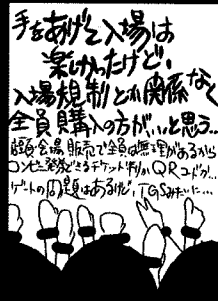 手をあげて入場は
楽しかったけど、
入場規制とか関係なく
全員購入の方が…いいと思う…
会場販売で全員は無理があるから
コンビニ発券できるチケット制か QRコードか…
ゲートの問題はあるけど、TGSみたいに…